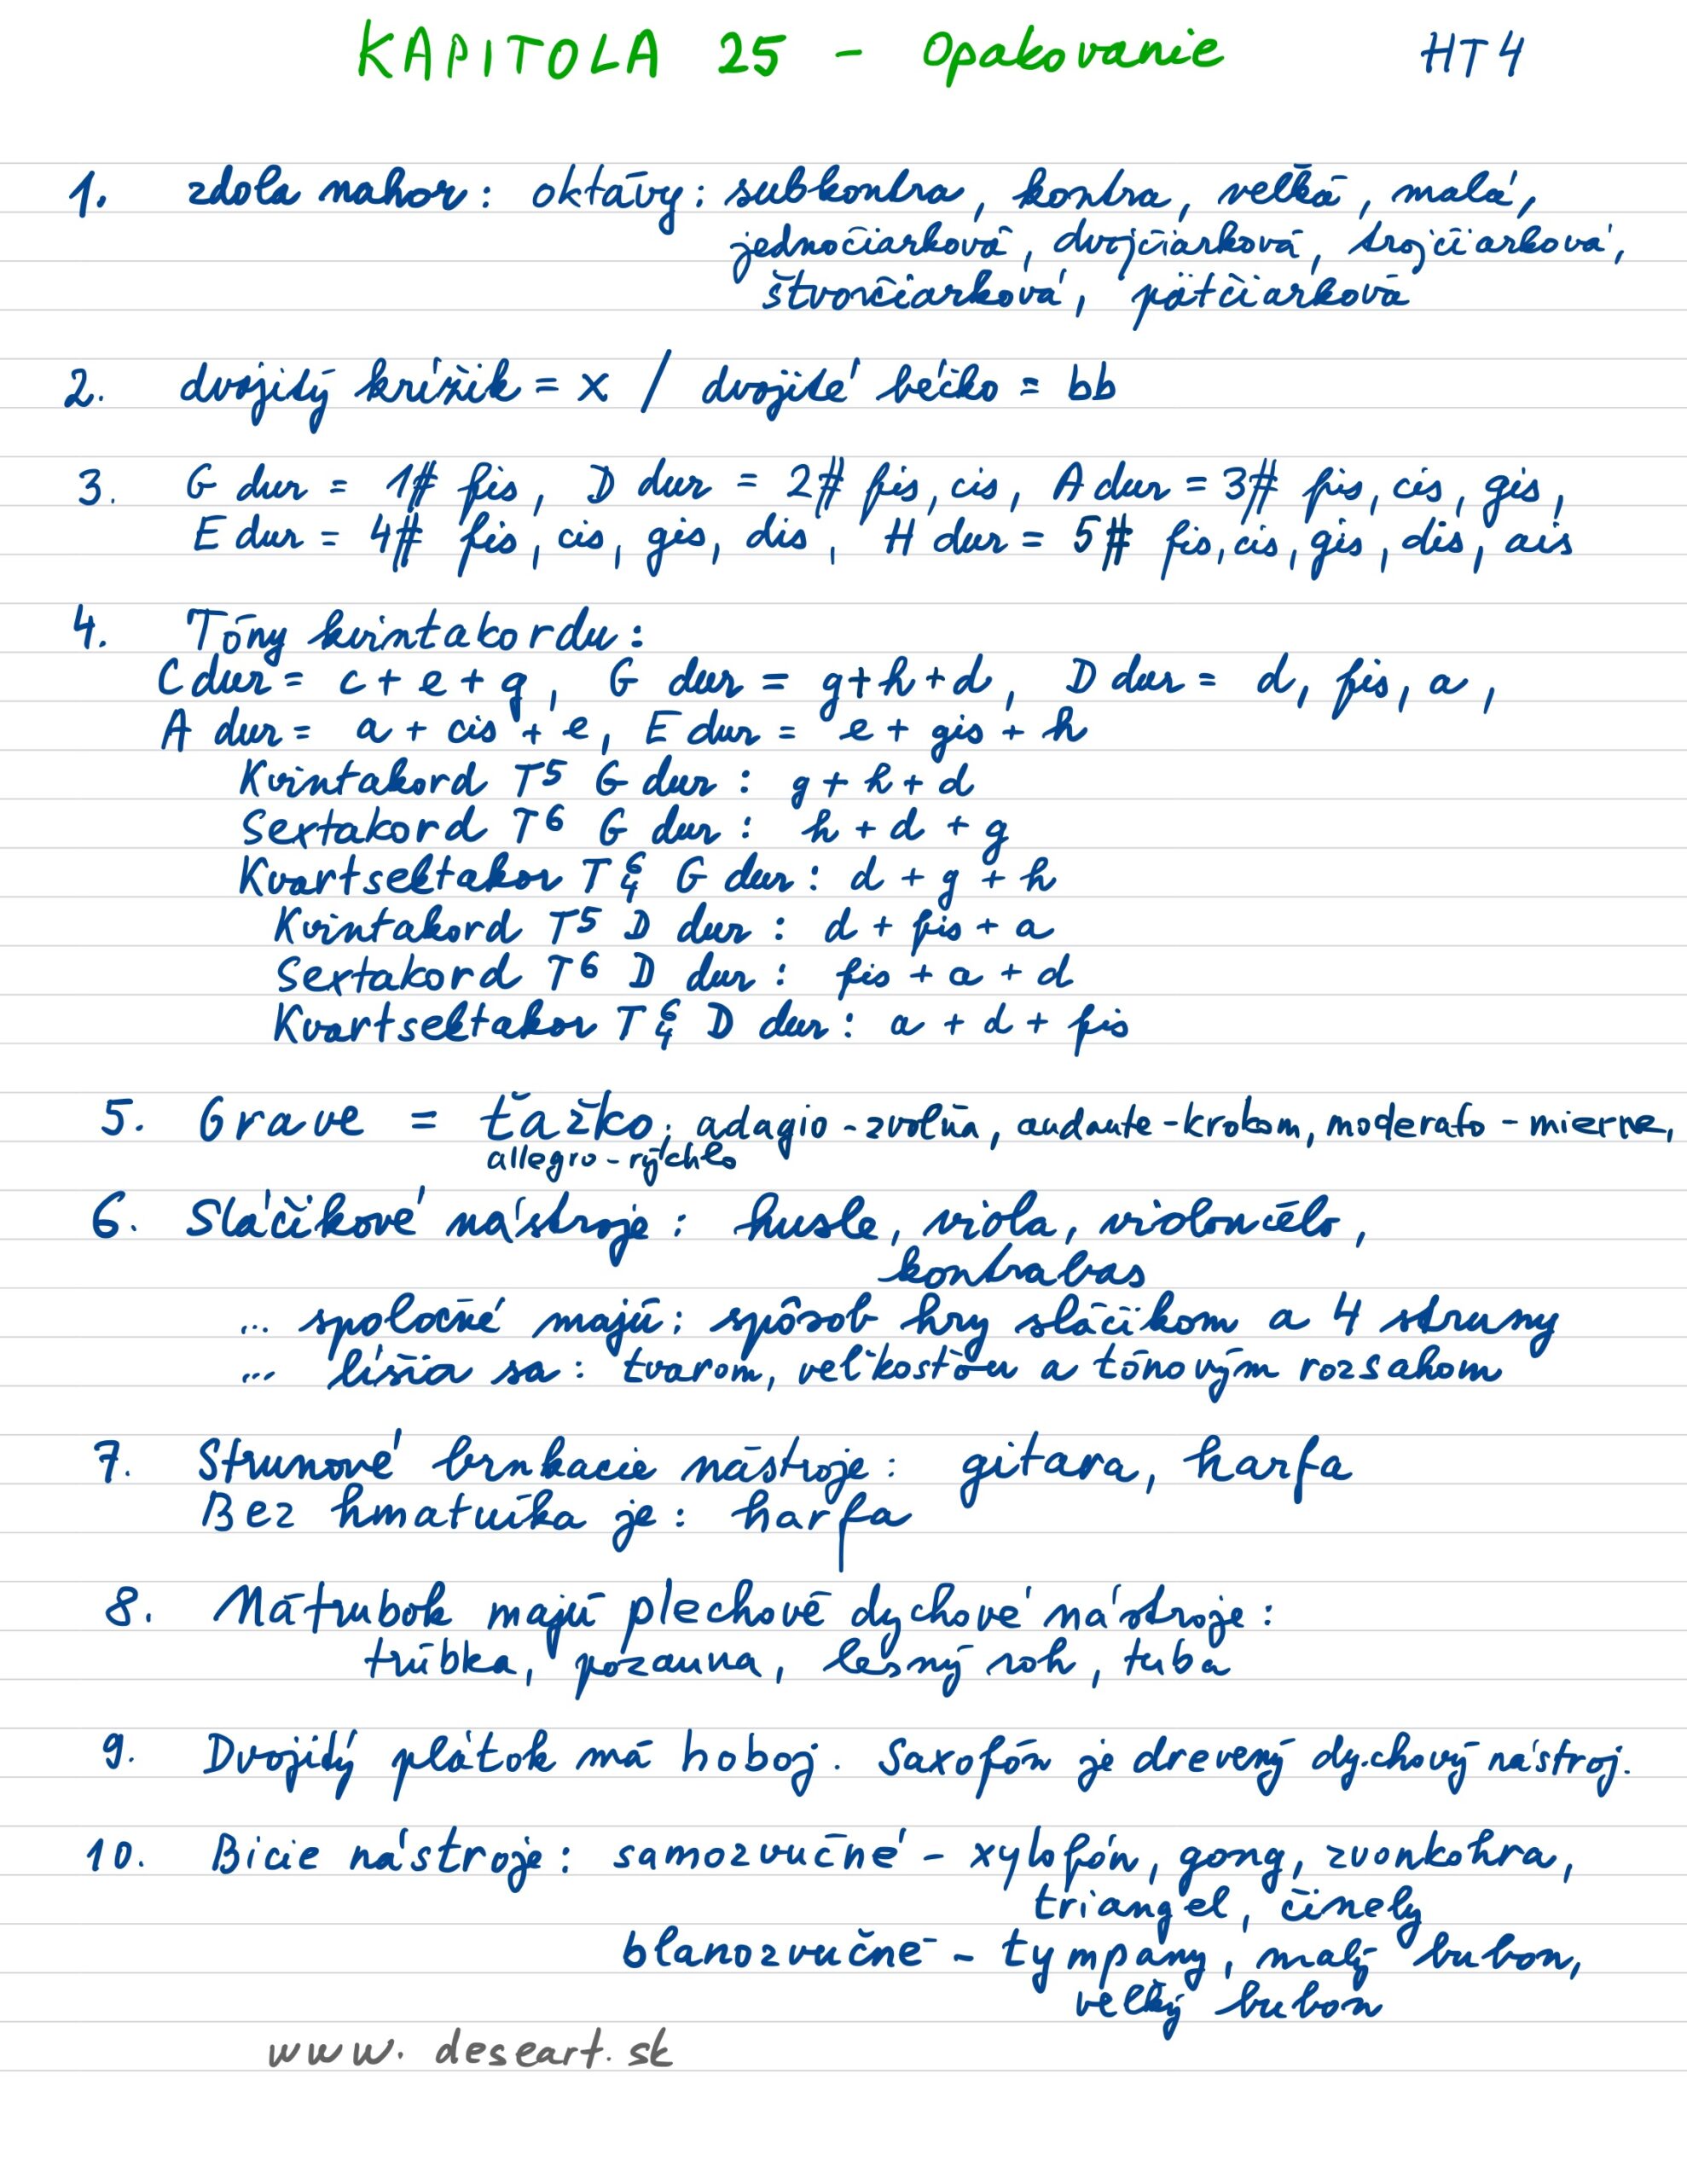 KAPITOLA 25 - Opakovanie HT4
1. zdola nahor: oktávy: subkontra, kontra, veľká, malá,
jednočiarková, dvojčiarková, trojčiarková,
štvorčiarková, päťčiarková
2. dvojitý krížik = x / dvojité béčko = bb
3. G dur = 1# fis, D dur = 2# fis, cis, A dur = 3# fis, cis, gis,
E dur = 4# fis, cis, gis, dis, H dur = 5# fis, cis, gis, dis, ais
4. Tóny kvintakordu:
C dur = c + e + g, G dur = g + h + d, D dur = d, fis, a,
A dur = a + cis + e, E dur = e + gis + h
Kvintakord T5 G dur: g + h + d
Sextakord T6 G dur: h + d + g
Kvartsektakor T6/4 G dur: d + g + h
Kvintakord T5 D dur: d + fis + a
Sextakord T6 D dur: fis + a + d
Kvartsektakor T6/4 D dur: a + d + fis
5. Grave = ťažko, adagio - zvoľna, andante - krokom, moderato - mierne,
allegro - rýchlo
6. Sláčikové nástroje: husle, viola, violončelo,
kontrabas
... spoločné majú: spôsob hry sláčikom a 4 struny
... líšia sa: tvarom, veľkosťou a tónovým rozsahom
7. Strunové brnkacie nástroje: gitara, harfa
Bez hmatníka je: harfa
8. Nátrubok majú plechové dychové nástroje:
trúbka, pozauna, lesný roh, tuba
9. Dvojitý plátok má hoboj. Saxofón je drevený dychový nástroj.
10. Bicie nástroje: samozvučné - xylofón, gong, zvonkohra,
triangel, činely
blanozvučné - tympany, malý bubon,
veľký bubon
www.deseart.sk